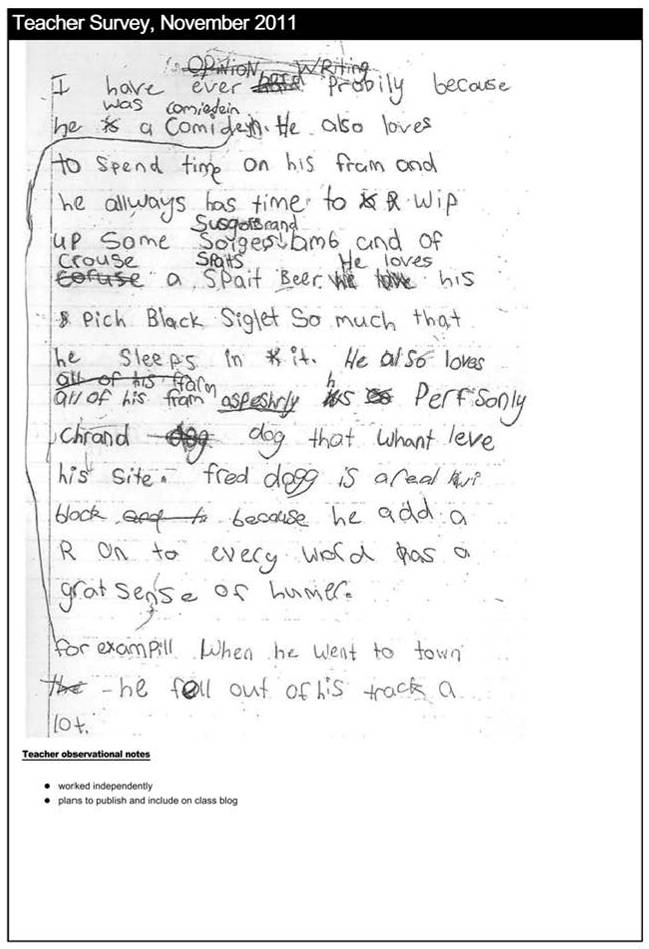 Teacher Survey, November 2011
OPINION WRiting
I have ever probily because
was comiedein
he is a Comidein. He also loves
to spend time on his fram and
he allways has time to R wip
Susgotsrand
up some Sorgest lamb and of
Crouse Spaits He loves
coruse a Spait Beer. his
Pich Black Siglet So much that
he Sleeps in it. He also loves
all of his farm
all of his fram aspeshrly his Perfsonly
h
chrand dog dog that whant leve
his site. fred dagg is a real kiwi
block and h because he add a
R on to every word has a
grat sense of humer.
for exampill when he went to town
the - he fell out of his track a
lot.
Teacher observational notes
• worked independently
• plans to publish and include on class blog